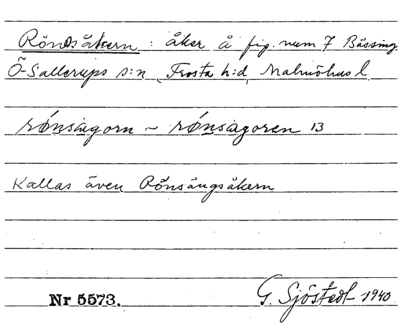 Rönsåkern : åker å fig. num 7 Bässing
Ö Sallerups s:n, Frosta h:d, Malmöhus l.
rónsågorn ~ rónsågoren 13
Kallas även Rönsängsåkern
Nr 5573. G. Sjöstedt 1940